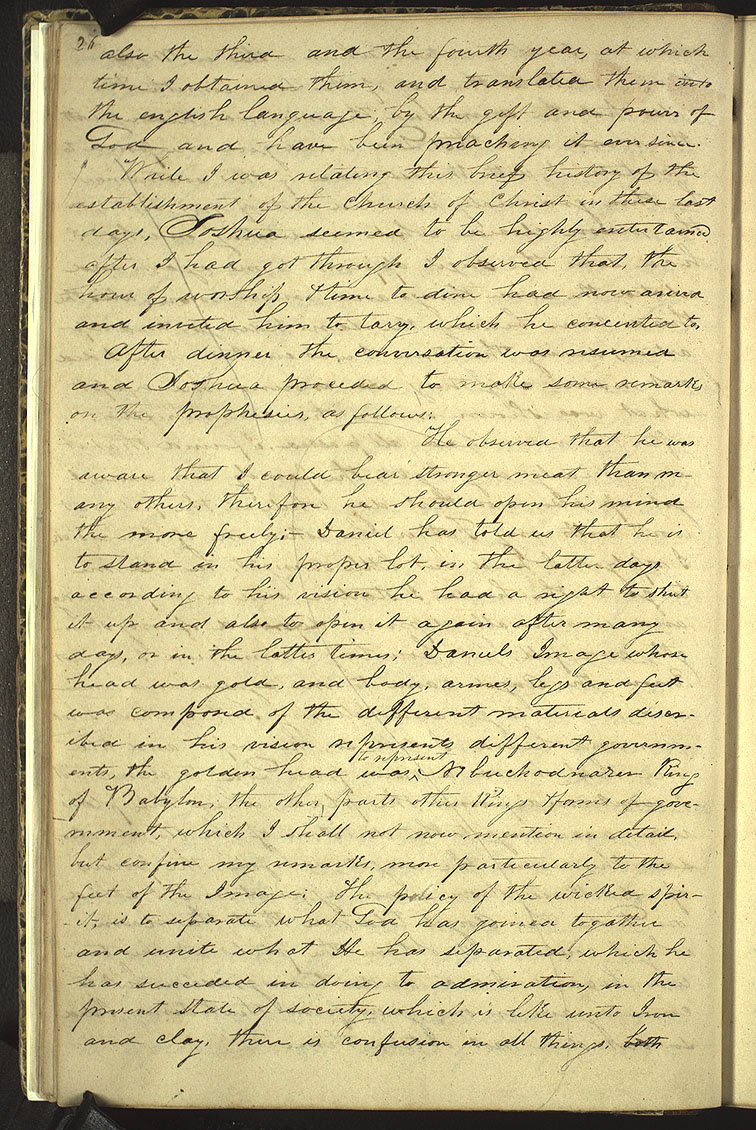 26
also the third and the fourth year, at which
time I obtained them, and translated them into
the english language; by the gift and power of
God and have been preaching it ever since.
While I was relating this brief history of the
establishment of the Church of Christ in these last
days, Joshua seemed to be highly entertained
after I had got through I observed that, the
hour of worship & time to dine had now arived
and invited him to tary, which he concented to,
After dinner the conversation was resumed
and Joshua proceded to make some remarks
on the prophesies, as follows:
He observed that he was
aware that I could bear stronger meat than m-
any others, therefore he should open his mind
the more freely;— Daniel has told us that he is
to stand in his proper lot, in the latter days
according to his vision he had a right to shut
it up and also to open it again after many
days, or in the latter times; Daniels Image whose
head was gold, and body, armes, legs and feet
was composed of the different materials discr-
ibed in his vision represents different governm-
ents, the golden head was
to represent
Nebuchodnazer King
of Babylon, the other parts other kings & forms of gove-
rnment, which I shall not now mention in detail,
but confine my remarks, more particularly to the
feet of the Image; The policy of the wicked spir-
it, is to separate what God has joined togather
and unite what He has separated, which he
has succeded in doing to admiration, in the
present state of society, which is like unto Iron
and clay, there is confusion in all things, both